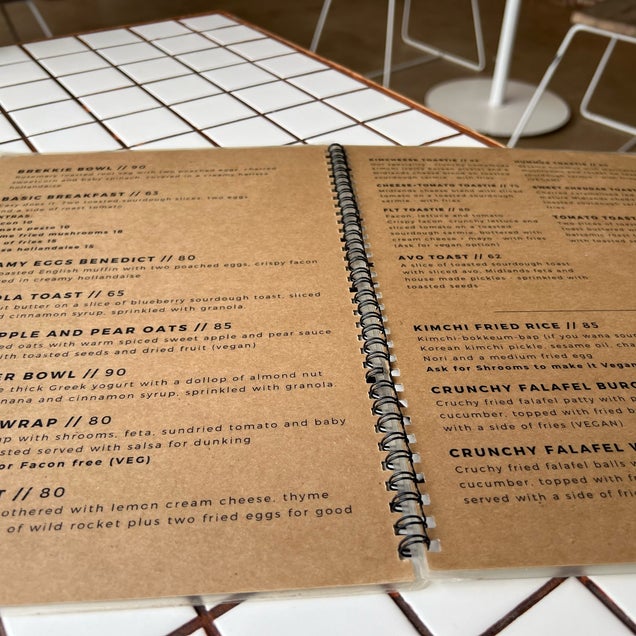 BREKKIE BOWL // 90
hollandaise
BASIC BREAKFAST // 65
and a side of roast tomato
mato pesto 10
me fried mushrooms 18
of fries 15
ea hollandaise 15
AMY EGGS BENEDICT // 80
oasted English muffin with two poached eggs, crispy facon
ed in creamy hollandaise
OLA TOAST // 65
ut butter on a slice of blueberry sourdough toast, sliced
d cinnamon syrup, sprinkled with granola.
PPLE AND PEAR OATS // 85
ed oats with warm spiced sweet apple and pear sauce
ith toasted seeds and dried fruit (vegan)
ER BOWL // 90
e thick Greek yogurt with a dollop of almond nut
nana and cinnamon syrup, sprinkled with granola.
WRAP // 80
ap with shrooms, feta, sundried tomato and baby
sted served with salsa for dunking
or Facon free (VEG)
T // 80
othered with lemon cream cheese, thyme
of wild rocket plus two fried eggs for good
KIMCHEESE TOASTIE //
CHEESE-TOMATO TOASTIE //
FLT TOASTIE // 80
Facon, lettuce and tomato
crispy facon, crunchy lettuce and
sliced tomato on a toasted
cream cheese + mayo - with fries
(Ask for vegan option)
AVO TOAST // 62
A slice of sourdough toast
with sliced avo, Midlands feta and
house made pickles - sprinkled with
toasted seeds
SWEET CHEDDAR TOAST
TOMATO TOAST
KIMCHI FRIED RICE // 85
Kimchi-bokkeum-bap (if you wana soun
Korean, kimchi pickle, sesame oil, cha
Nori and a medium fried egg
Ask for Shrooms to make it Vegan
CRUNCHY FALAFEL BURG
Cruchy fried falafel patty with p
cucumber, topped with fried b
with a side of fries (VEGAN)
CRUNCHY FALAFEL W
Cruchy fried falafel balls
cucumber, topped with f
served with a side of frie